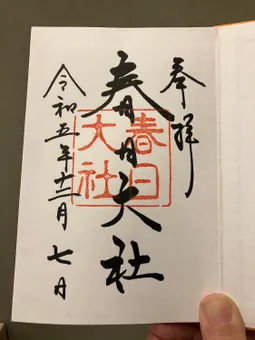 奉拝
春日大社
春日
大社
令和五年十二月七日